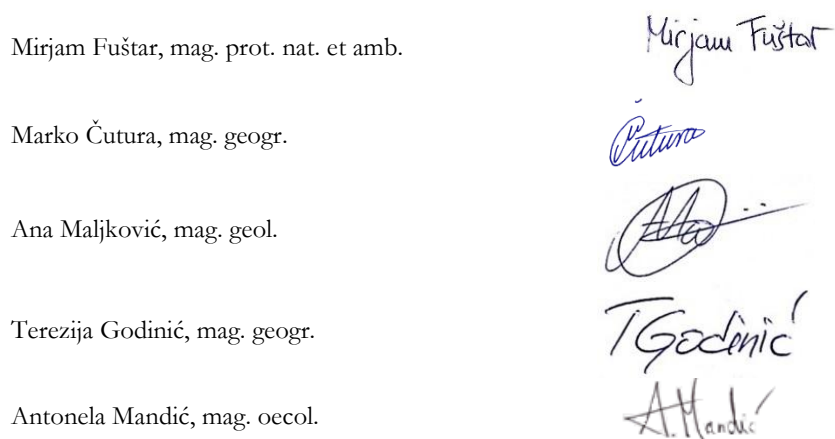 Mirjam Fuštar, mag. prot. nat. et amb.
Mirjam Fuštar
Marko Čutura, mag. geogr.
Čutura
Ana Maljković, mag. geol.
Terezija Godinić, mag. geogr.
TGodinić
Antonela Mandić, mag. oecol.
A. Mandić